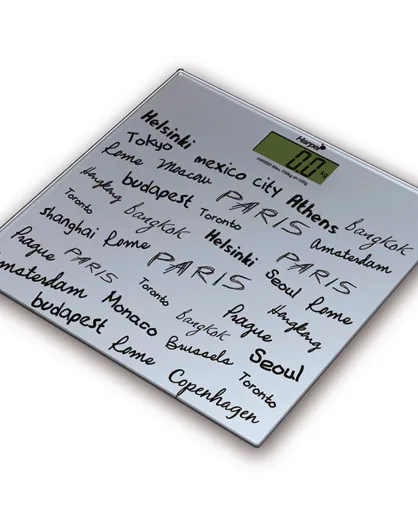 Harper
0.0 kg
Helsinki
Tokyo mexico city Athens Bangkok
Rome Moscow PARIS Amsterdam
Hongkong budapest Toronto
Toronto Bangkok Helsinki PARIS
shanghai Rome PARIS Seoul Rome
Prague PARIS Toronto Hongkong
Amsterdam Monaco Bangkok Prague
budapest Brussels Seoul
Rome Toronto
Copenhagen